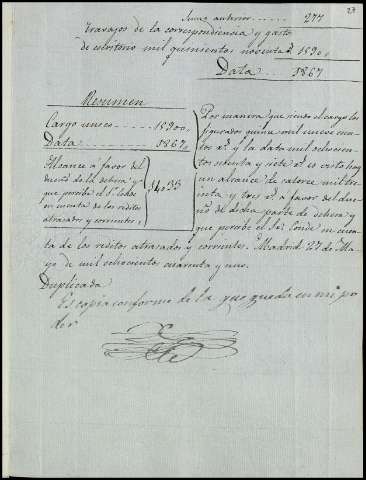 27
Suma anterior ...... 277
Travajos de la correspondiencia y gasto
de escritorio mil quinientos noventa r.^s 1590,,
Data ... 1867
Resumen
Cargo unico ..... 15900,,
Data ......... 1867,,
Alcance a favor del
dueño de la dehesa y
que percibe el S.^or Conde
en cuenta de los reditos
atrasados y corrientes,,
14033
Por manera que siendo el cargo los
figurados quince mil nuevecien
tos r.^s y la data mil ochocien
tos sesenta y siete r.^s es visto hay
un alcance de catorce mil tre
inta y tres r.^s a favor del due
ño de dicha parte de dehesa y
que percibe el S.^or Conde en cuen
ta de los reditos atrasados y corrientes. Madrid 27 de Ma
yo de mil ochocientos cuarenta y uno.
Duplicada
Es copia conforme de la que queda en mi po
der